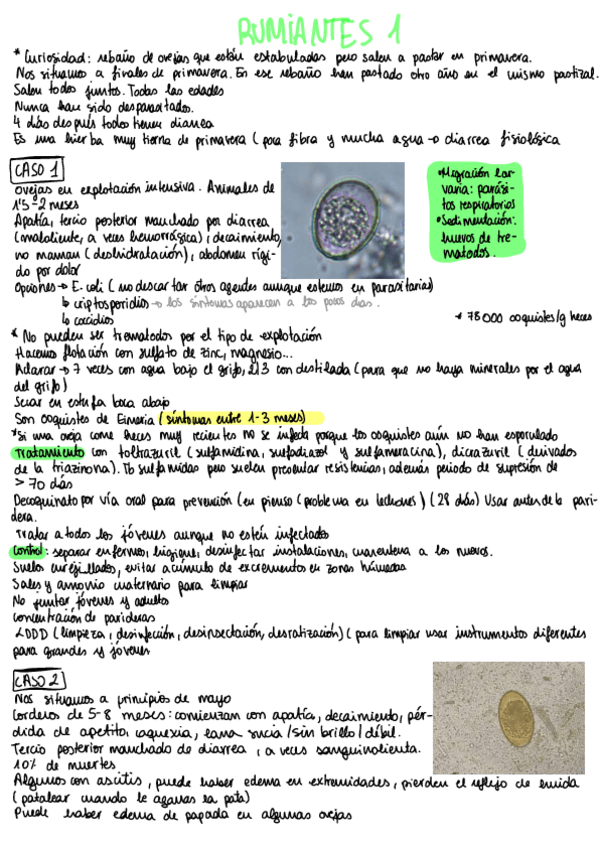 RUMIANTES 1
* Curiosidad: rebaño de ovejas que están estabuladas pero salen a pastar en primavera.
Nos situamos a finales de primavera. En ese rebaño han pastado otro año en el mismo pastizal.
Salen todos juntos. Todas las edades
Nunca han sido desparasitados.
4 días después todos tienen diarrea
Es una hierba muy tierna de primavera (poca fibra y mucha agua → diarrea fisiológica
CASO 1
ovejas en explotación intensiva. Animales de
1'5-2 meses
Apatía, tercio posterior manchado por diarrea
(maloliente, a veces hemorrágica), decaimiento,
no maman (deshidratación), abdomen rígi-
do por dolor
Opciones → E. coli (no descartar otros agentes aunque estemos en parasitarias)
↳ criptosporidios → los síntomas aparecen a los pocos días.
↳ coccidios
• Migración lar-
varia: parási-
tos respiratorios
• Sedimentación:
huevos de tre-
matodos.
* 78000 ooquistes/g heces
* No pueden ser trematodos por el tipo de explotación
Hacemos flotación con sulfato de zinc, magnesio...
Aclarar → 7 veces con agua bajo el grifo, 2/3 con destilada (para que no haya minerales por el agua
del grifo)
Secar en estufa boca abajo
Son ooquistes de Eimeria (síntomas entre 1-3 meses)
*Si una oveja come heces muy recientes no se infecta porque los ooquistes aún no han esporulado
Tratamiento con toltrazuril (sulfamidina, sulfadiazol y sulfameracina), diclazuril (derivados
de la triazinona). Tb sulfamidas pero suelen presentar resistencias, además periodo de supresión de
> 70 días
Decoquinato por vía oral para prevención (en pienso (problema en lechones) (28 días) Usar antes de la pari-
dera.
Tratar a todos los jóvenes aunque no estén infectados
Control: separar enfermos, higiene, desinfectar instalaciones, cuarentena a los nuevos.
Suelos enrejillados, evitar acúmulo de excrementos en zonas húmedas
Sales y amonio cuaternario para limpiar
No juntar jóvenes y adultos
Concentración de parideras
LDDD (limpieza, desinfección, desinsectación, desratización) (para limpiar usar instrumentos diferentes
para grandes y jóvenes
CASO 2
Nos situamos a principios de mayo
Corderos de 5-8 meses: comienzan con apatía, decaimiento, pér-
dida de apetito, caquexia, lana sucia/sin brillo/débil.
Tercio posterior manchado de diarrea, a veces sanguinolienta.
10% de muertes
Algunos con ascitis, puede haber edema en extremidades, pierden el reflejo de huida
(patalear cuando le agarras la pata)
Puede haber edema de papada en algunas ovejas